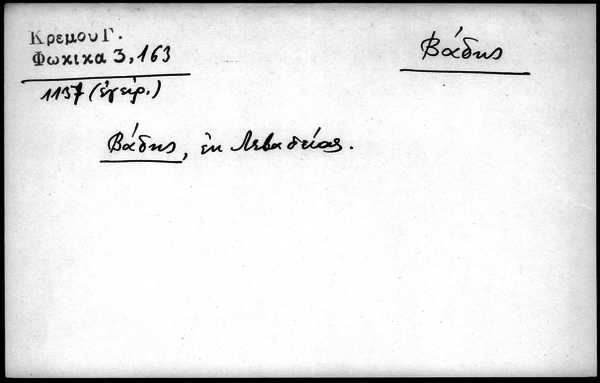 Κρεμου Γ.
Φωκικα 3, 163
Βάδης
1137 (ἐγείρ.)
Βάδης, ἐκ Λεβαδείας.